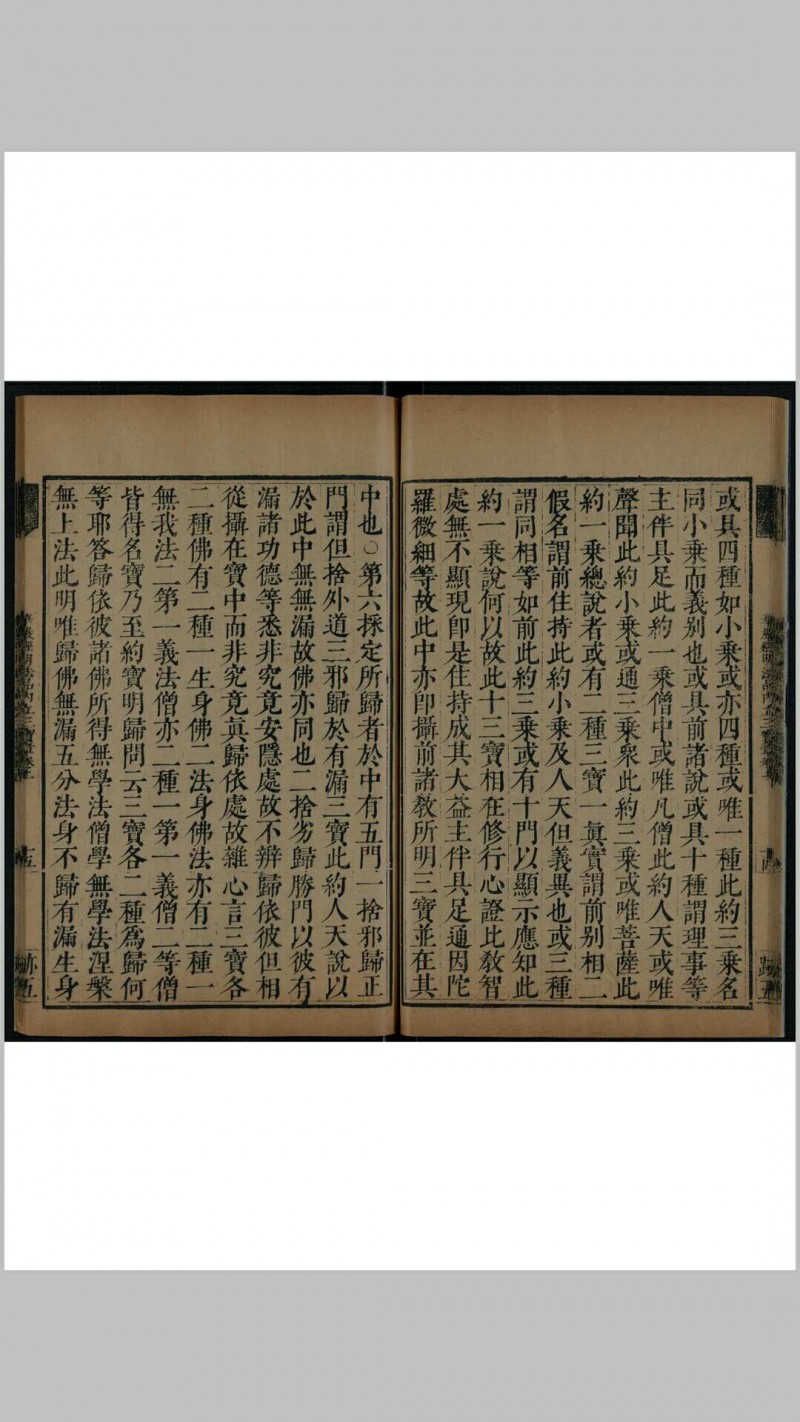 或具四種如小乘或亦四種或唯一種此約三乘名
同小乘而義别也或具前諸說或具十種謂理事等
主伴具足此約一乘僧中或唯凡僧此約人天或唯
聲聞此約小乘或通三乘衆此約三乘或唯菩薩此
約一乘總說者或有二種三寶一眞實謂前别相二
假名謂前住持此約小乘及人天但義異也或三種
謂同相等如前此約三乘或有十門以顯示應知此
約一乘說何以故此十三寶相在修行心證比敎智
處無不顯現卽是住持成其大益主伴具足通因陀
羅微細等故此中亦卽攝前諸敎所明三寶並在其
中也○第六採定所歸者於中有五門一捨邪歸正
門謂但捨外道三邪歸於有漏三寶此約人天說以
於此中無無漏故佛亦同也二捨劣歸勝門以彼有
漏諸功德等悉非究竟安隱處故不辨歸依彼但相
從攝在寶中而非究竟眞歸依處故雜心言三寶各
二種佛有二種一生身佛二法身佛法亦有二種一
無我法二第一義法僧亦二種一第一義僧二等僧
皆得名寶乃至約寶明歸問云三寶各二種爲歸何
等耶答歸依彼諸佛所得無學法僧學無學法涅槃
無上法此明唯歸佛無漏五分法身不歸有漏生身